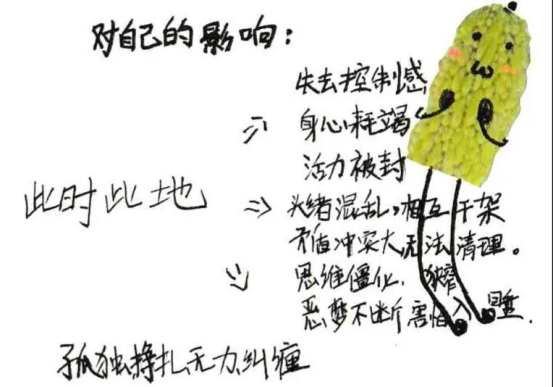 对自己的影响：
失去控制感
身心耗竭
活力被封
此时此地
头绪混乱，相互干架
矛盾冲突大，无法清理。
思维僵化，狭窄
恶梦不断害怕入睡.
孤独挣扎无力纠缠